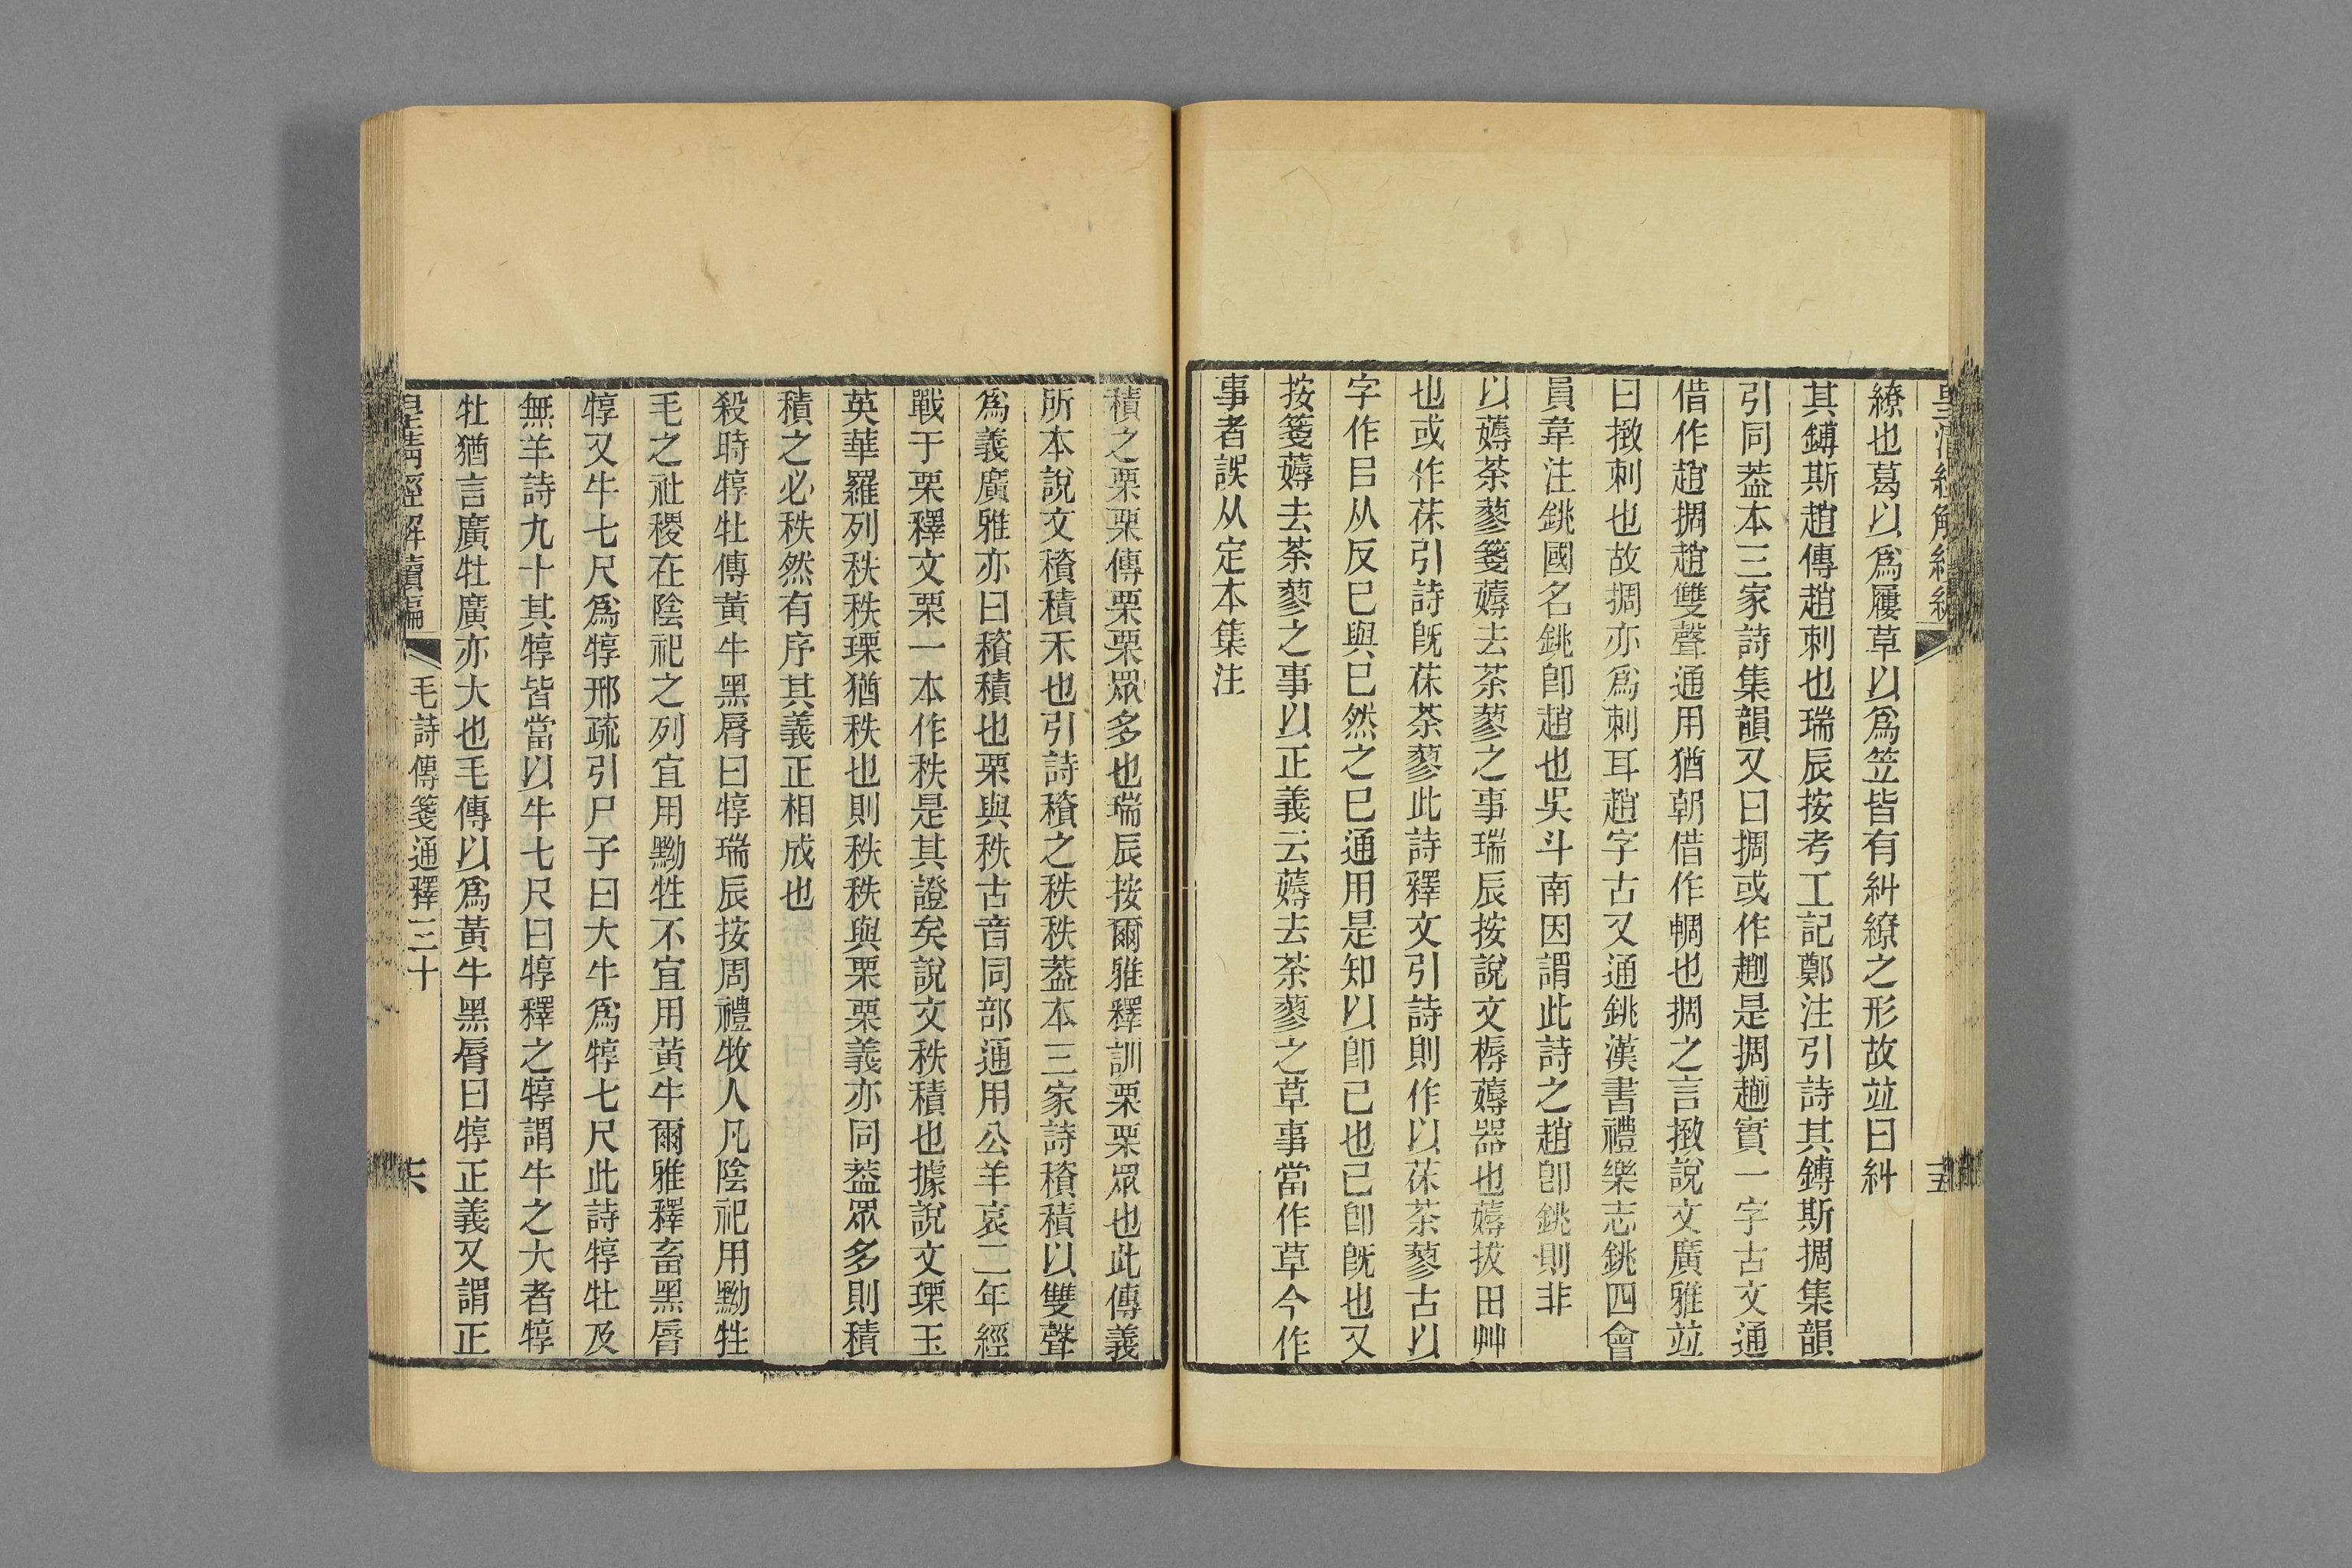 皇清經解續編
五
繚也葛以爲屨草以爲笠皆有糾繚之形故竝曰糾
其鎛斯趙傳趙刺也瑞辰按考工記鄭注引詩其鎛斯捆集韻
引同葢本三家詩集韻又曰捆或作趟是捆趟實一字古文通
借作趙捆趙雙聲通用猶朝借作輖也捆之言撽說文廣雅竝
曰撽刺也故捆亦爲刺耳趙字古又通銚漢書禮樂志銚四會
員韋注銚國名銚卽趙也吳斗南因謂此詩之趙卽銚則非
以薅荼蓼箋薅去荼蓼之事瑞辰按說文槈薅器也薅拔田艸
也或作茠引詩旣茠荼蓼此詩釋文引詩則作以茠荼蓼古以
字作㠯从反巳與巳然之巳通用是知以卽已也已卽旣也又
按箋薅去荼蓼之事以正義云薅去荼蓼之草事當作草今作
事者誤从定本集注
積之栗栗傳栗栗眾多也瑞辰按爾雅釋訓栗栗眾也此傳義
所本說文䅣積禾也引詩䅣之秩秩葢本三家詩䅣積以雙聲
爲義廣雅亦曰䅣積也栗與秩古音同部通用公羊哀二年經
戰于栗釋文栗一本作秩是其證矣說文秩積也據說文瑮玉
英華羅列秩秩瑮猶秩也則秩秩與栗栗義亦同葢眾多則積
積之必秩然有序其義正相成也
殺時犉牡傳黃牛黑脣曰犉瑞辰按周禮牧人凡陰祀用黝牲
毛之社稷在陰祀之列宜用黝牲不宜用黃牛爾雅釋畜黑脣
犉又牛七尺爲犉邢疏引尸子曰大牛爲犉七尺此詩犉牡及
無羊詩九十其犉皆當以牛七尺曰犉釋之犉謂牛之大者犉
牡猶言廣牡廣亦大也毛傳以爲黃牛黑脣曰犉正義又謂正
皇清經解續編
毛詩傳箋通釋三十